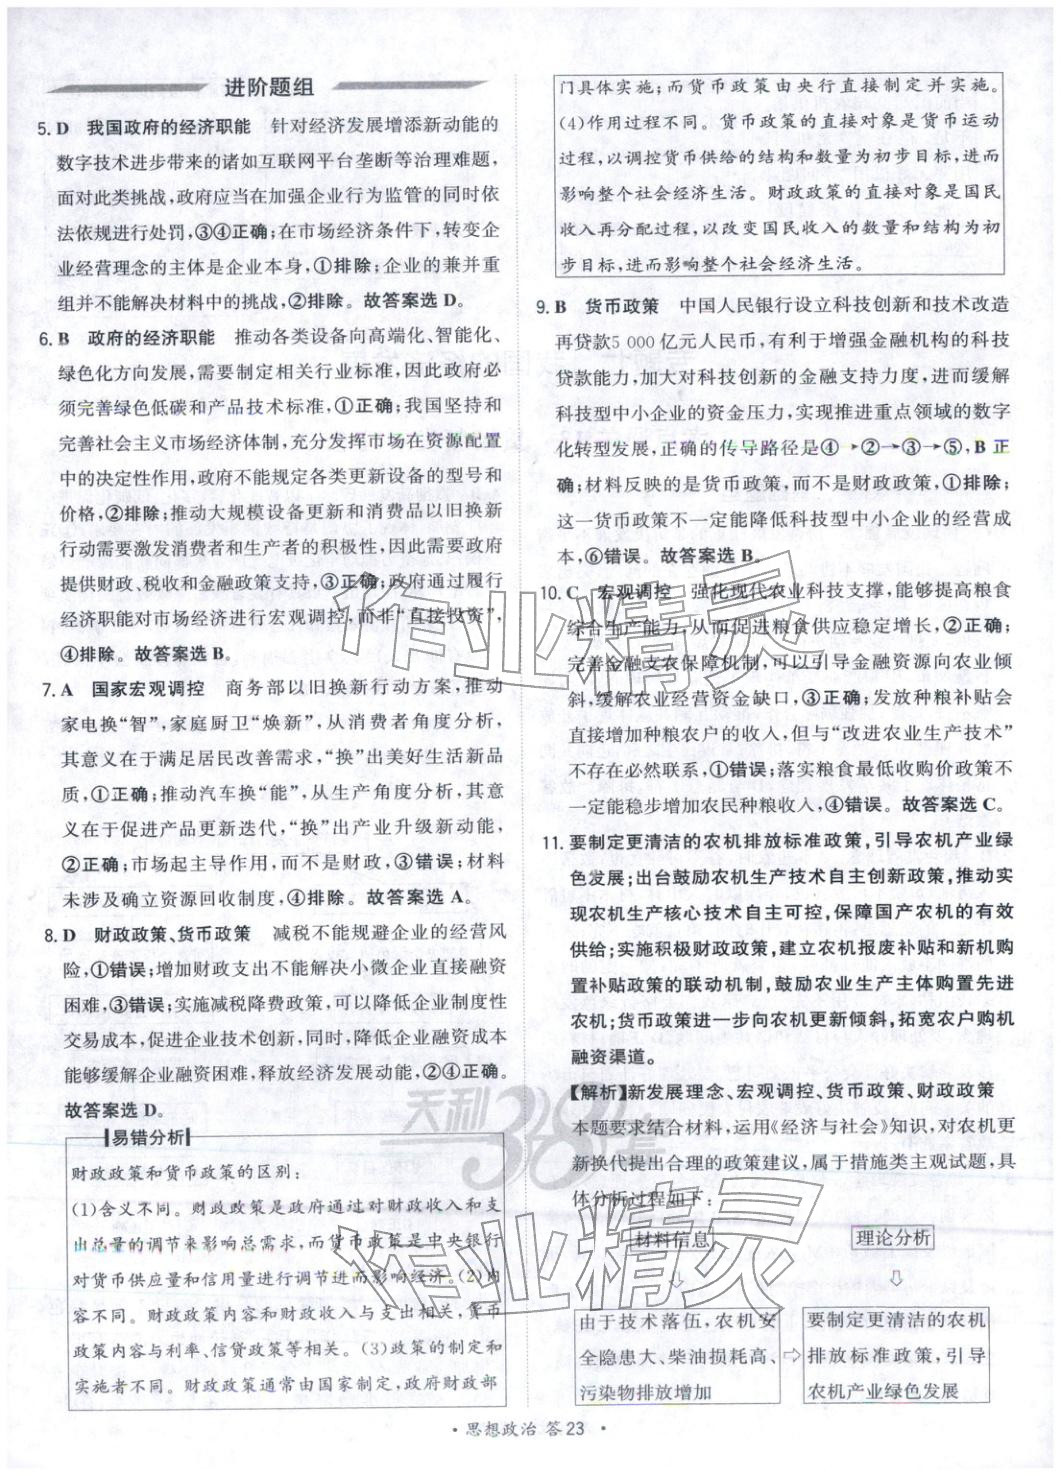 进阶题组
5. D 我国政府的经济职能 针对经济发展增添新动能的
数字技术进步带来的诸如互联网平台垄断等治理难题，
面对此类挑战，政府应当在加强企业行为监管的同时依
法依规进行处罚，③④正确；在市场经济条件下，转变企
业经营理念的主体是企业本身，①排除；企业的兼并重
组并不能解决材料中的挑战，②排除。故答案选 D。
6. B 政府的经济职能 推动各类设备向高端化、智能化、
绿色化方向发展，需要制定相关行业标准，因此政府必
须完善绿色低碳和产品技术标准，①正确；我国坚持和
完善社会主义市场经济体制，充分发挥市场在资源配置
中的决定性作用，政府不能规定各类更新设备的型号和
价格，②排除；推动大规模设备更新和消费品以旧换新
行动需要激发消费者和生产者的积极性，因此需要政府
提供财政、税收和金融政策支持，③正确；政府通过履行
经济职能对市场经济进行宏观调控，而非“直接投资”，
④排除。故答案选 B。
7. A 国家宏观调控 商务部以旧换新行动方案，推动
家电换“智”，家庭厨卫“焕新”，从消费者角度分析，
其意义在于满足居民改善需求，“换”出美好生活新品
质，①正确；推动汽车换“能”，从生产角度分析，其意
义在于促进产品更新迭代，“换”出产业升级新动能，
②正确；市场起主导作用，而不是财政，③错误；材料
未涉及确立资源回收制度，④排除。故答案选 A。
8. D 财政政策、货币政策 减税不能规避企业的经营风
险，①错误；增加财政支出不能解决小微企业直接融资
困难，③错误；实施减税降费政策，可以降低企业制度性
交易成本，促进企业技术创新，同时，降低企业融资成本
能够缓解企业融资困难，释放经济发展动能，②④正确。
故答案选 D。
易错分析
财政政策和货币政策的区别：
(1)含义不同。财政政策是政府通过对财政收入和支
出总量的调节来影响总需求，而货币政策是中央银行
对货币供应量和信用量进行调节进而影响经济。(2)内
容不同。财政政策内容和财政收入与支出相关，货币
政策内容与利率、信贷政策等相关。(3)政策的制定和
实施者不同。财政政策通常由国家制定，政府财政部
门具体实施；而货币政策由央行直接制定并实施。
(4)作用过程不同。货币政策的直接对象是货币运动
过程，以调控货币供给的结构和数量为初步目标，进而
影响整个社会经济生活。财政政策的直接对象是国民
收入再分配过程，以改变国民收入的数量和结构为初
步目标，进而影响整个社会经济生活。
9. B 货币政策 中国人民银行设立科技创新和技术改造
再贷款5 000亿元人民币，有利于增强金融机构的科技
贷款能力，加大对科技创新的金融支持力度，进而缓解
科技型中小企业的资金压力，实现推进重点领域的数字
化转型发展，正确的传导路径是④→②→③→⑤，B 正
确；材料反映的是货币政策，而不是财政政策，①排除；
这一货币政策不一定能降低科技型中小企业的经营成
本，⑥错误。故答案选 B。
10. C 宏观调控 强化现代农业科技支撑，能够提高粮食
综合生产能力，从而促进粮食供应稳定增长，②正确；
完善金融支农保障机制，可以引导金融资源向农业倾
斜，缓解农业经营资金缺口，③正确；发放种粮补贴会
直接增加种粮农户的收入，但与“改进农业生产技术”
不存在必然联系，①错误；落实粮食最低收购价政策不
一定能稳步增加农民种粮收入，④错误。故答案选 C。
11. 要制定更清洁的农机排放标准政策，引导农机产业绿
色发展；出台鼓励农机生产技术自主创新政策，推动实
现农机生产核心技术自主可控，保障国产农机的有效
供给；实施积极财政政策，建立农机报废补贴和新机购
置补贴政策的联动机制，鼓励农业生产主体购置先进
农机；货币政策进一步向农机更新倾斜，拓宽农户购机
融资渠道。
【解析】新发展理念、宏观调控、货币政策、财政政策
本题要求结合材料，运用《经济与社会》知识，对农机更
新换代提出合理的政策建议，属于措施类主观试题，具
体分析过程如下：
材料信息 理论分析
由于技术落伍，农机安
全隐患大、柴油损耗高、
污染物排放增加
要制定更清洁的农机
排放标准政策，引导
农机产业绿色发展
· 思想政治 答23 ·
作业精灵
天利38套
作业精灵